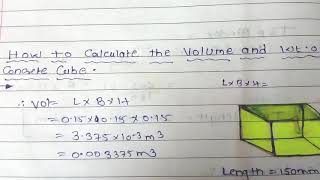 How to Calculate the Volume and wt. o
Concrete Cube.
L×B×H=
∴ Vol= L×B×H
= 0.15×0.15×0.15
= 3.375×10-3 m3
= 0.003375m3
Length = 150mm